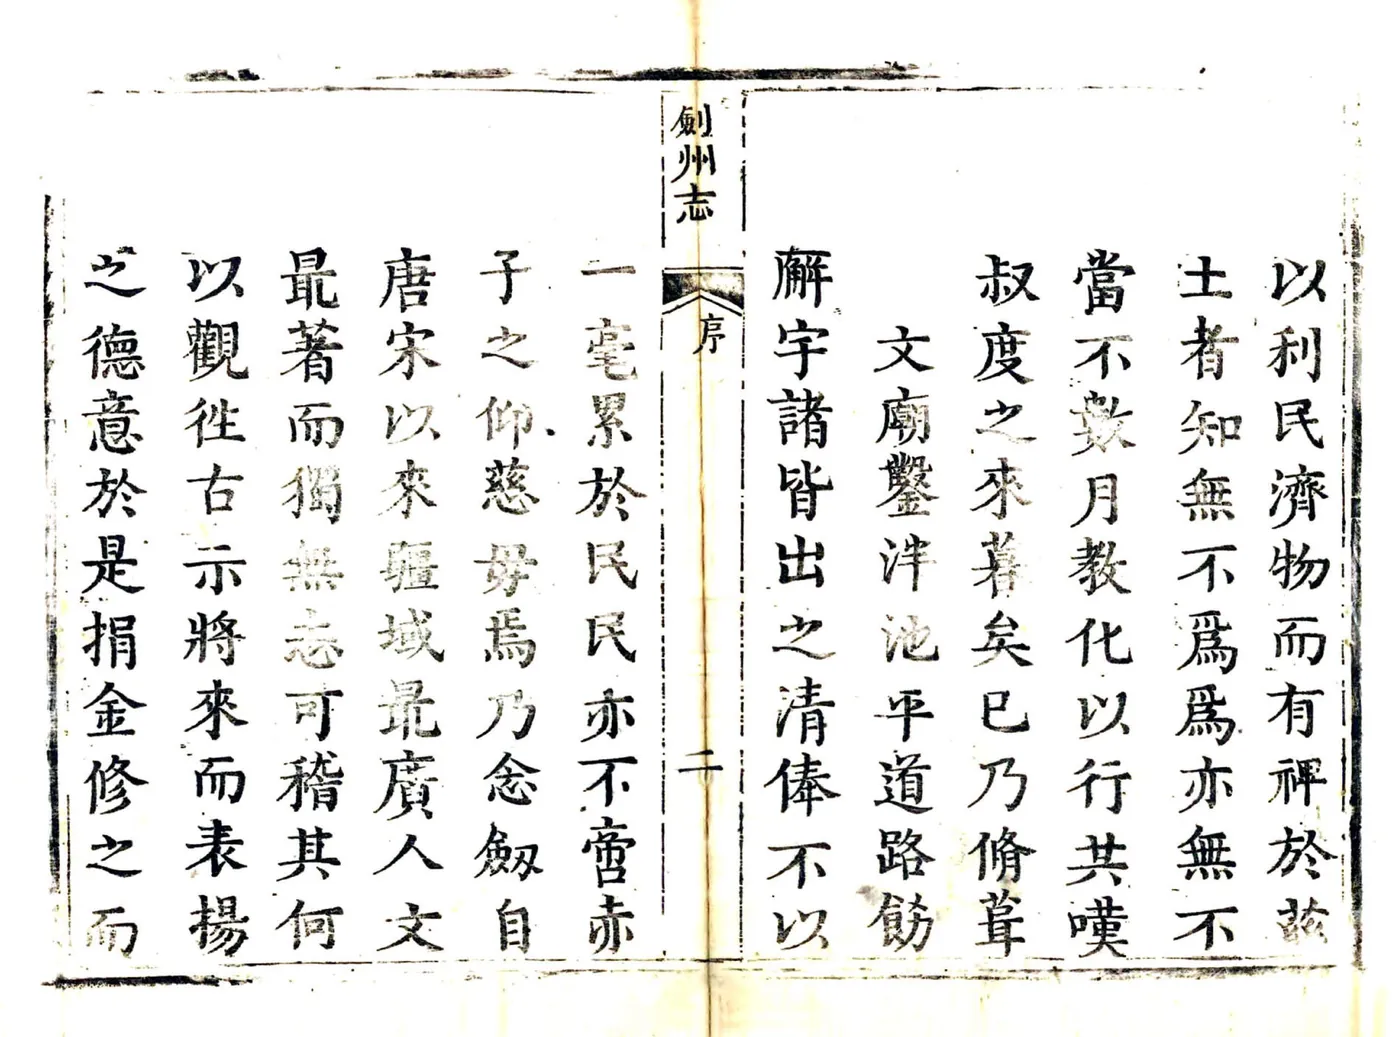 以利民濟物而有裨於兹
土者知無不爲爲亦無不
當不數月教化以行共嘆
叔度之來暮矣已乃脩葺
文廟鑿泮池平道路飭
廨宇諸皆出之清俸不以
劍州志
序
二
一毫累於民民亦不啻赤
子之仰慈母焉乃念劔自
唐宋以來疆域最廣人文
最著而獨無志可稽其何
以觀徃古示將來而表揚
之德意於是捐金修之而